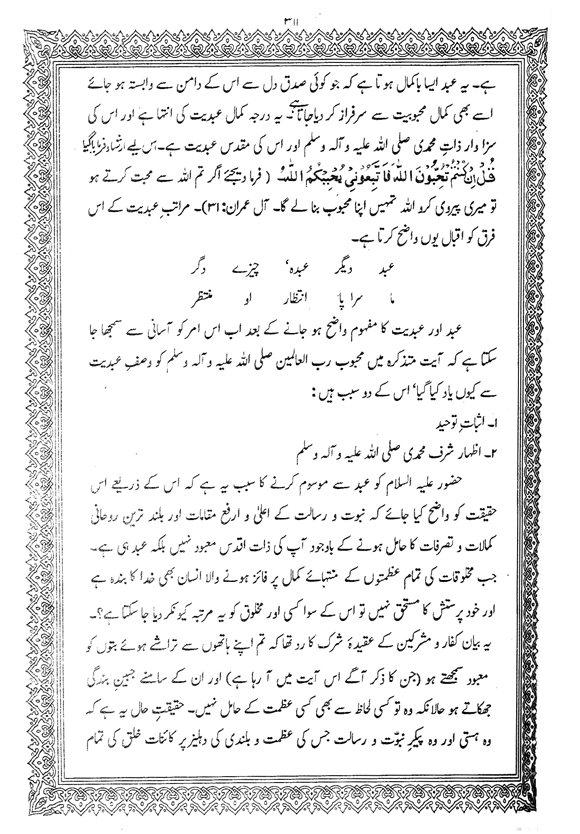 ۳۱۱
ہے۔ یہ عبد ایسا باکمال ہوتا ہے کہ جو کوئی صدق دل سے اس کے دامن سے وابستہ ہو جائے
اسے بھی کمال محبوبیت سے سرفراز کر دیا جاتا ہے۔ یہ درجہ کمال عبدیت کی انتہا ہے اور اس کی
سزا وار ذاتِ محمدی صلی اللہ علیہ و آلہ وسلم اور اس کی مقدس عبدیت ہے۔ اس لیے ارشاد فرمایا گیا
قُلْ اِنْ كُنْتُمْ تُحِبُّوْنَ اللّٰهَ فَاتَّبِعُوْنِيْ يُحْبِبْكُمُ اللّٰهُ (فرما دیجئے اگر تم اللہ سے محبت کرتے ہو
تو میری پیروی کرو اللہ تمہیں اپنا محبوب بنا لے گا۔ آل عمران: ۳۱)۔ مراتب عبدیت کے اس
فرق کو اقبال یوں واضح کرتا ہے۔
عبد دیگر عبدہ‘ چیزے دگر
ما سراپا انتظار او منتظر
عبد اور عبدیت کا مفہوم واضح ہو جانے کے بعد اب اس امر کو آسانی سے سمجھا جا
سکتا ہے کہ آیت متذکرہ میں محبوب رب العالمین صلی اللہ علیہ و آلہ وسلم کو وصفِ عبدیت
سے کیوں یاد کیا گیا‘ اس کے دو سبب ہیں:
۱۔ اثباتِ توحید
۲۔ اظہار شرف محمدی صلی اللہ علیہ و آلہ وسلم
حضور علیہ السلام کو عبد سے موسوم کرنے کا سبب یہ ہے کہ اس کے ذریعے اس
حقیقت کو واضح کیا جائے کہ نبوت و رسالت کے اعلیٰ و ارفع مقامات اور بلند ترین روحانی
کمالات و تصرفات کا حامل ہونے کے باوجود آپ کی ذات اقدس معبود نہیں بلکہ عبد ہی ہے۔
جب مخلوقات کی تمام عظمتوں کے منتہائے کمال پر فائز ہونے والا انسان بھی خدا کا بندہ ہے
اور خود پرستش کا مستحق نہیں تو اس کے سوا کسی اور مخلوق کو یہ مرتبہ کیونکر دیا جا سکتا ہے؟۔
یہ بیان کفار و مشرکین کے عقیدۂ شرک کا رد تھا کہ تم اپنے ہاتھوں سے تراشے ہوئے بتوں کو
معبود سمجھتے ہو (جن کا ذکر آگے اس آیت میں آ رہا ہے) اور ان کے سامنے جبینِ بندگی
جھکاتے ہو حالانکہ وہ تو کسی لحاظ سے بھی کسی عظمت کے حامل نہیں۔ حقیقتِ حال یہ ہے کہ
وہ ہستی اور وہ پیکرِ نبوّت و رسالت جس کی عظمت و بلندی کی دہلیز پر کائنات خلق کی تمام